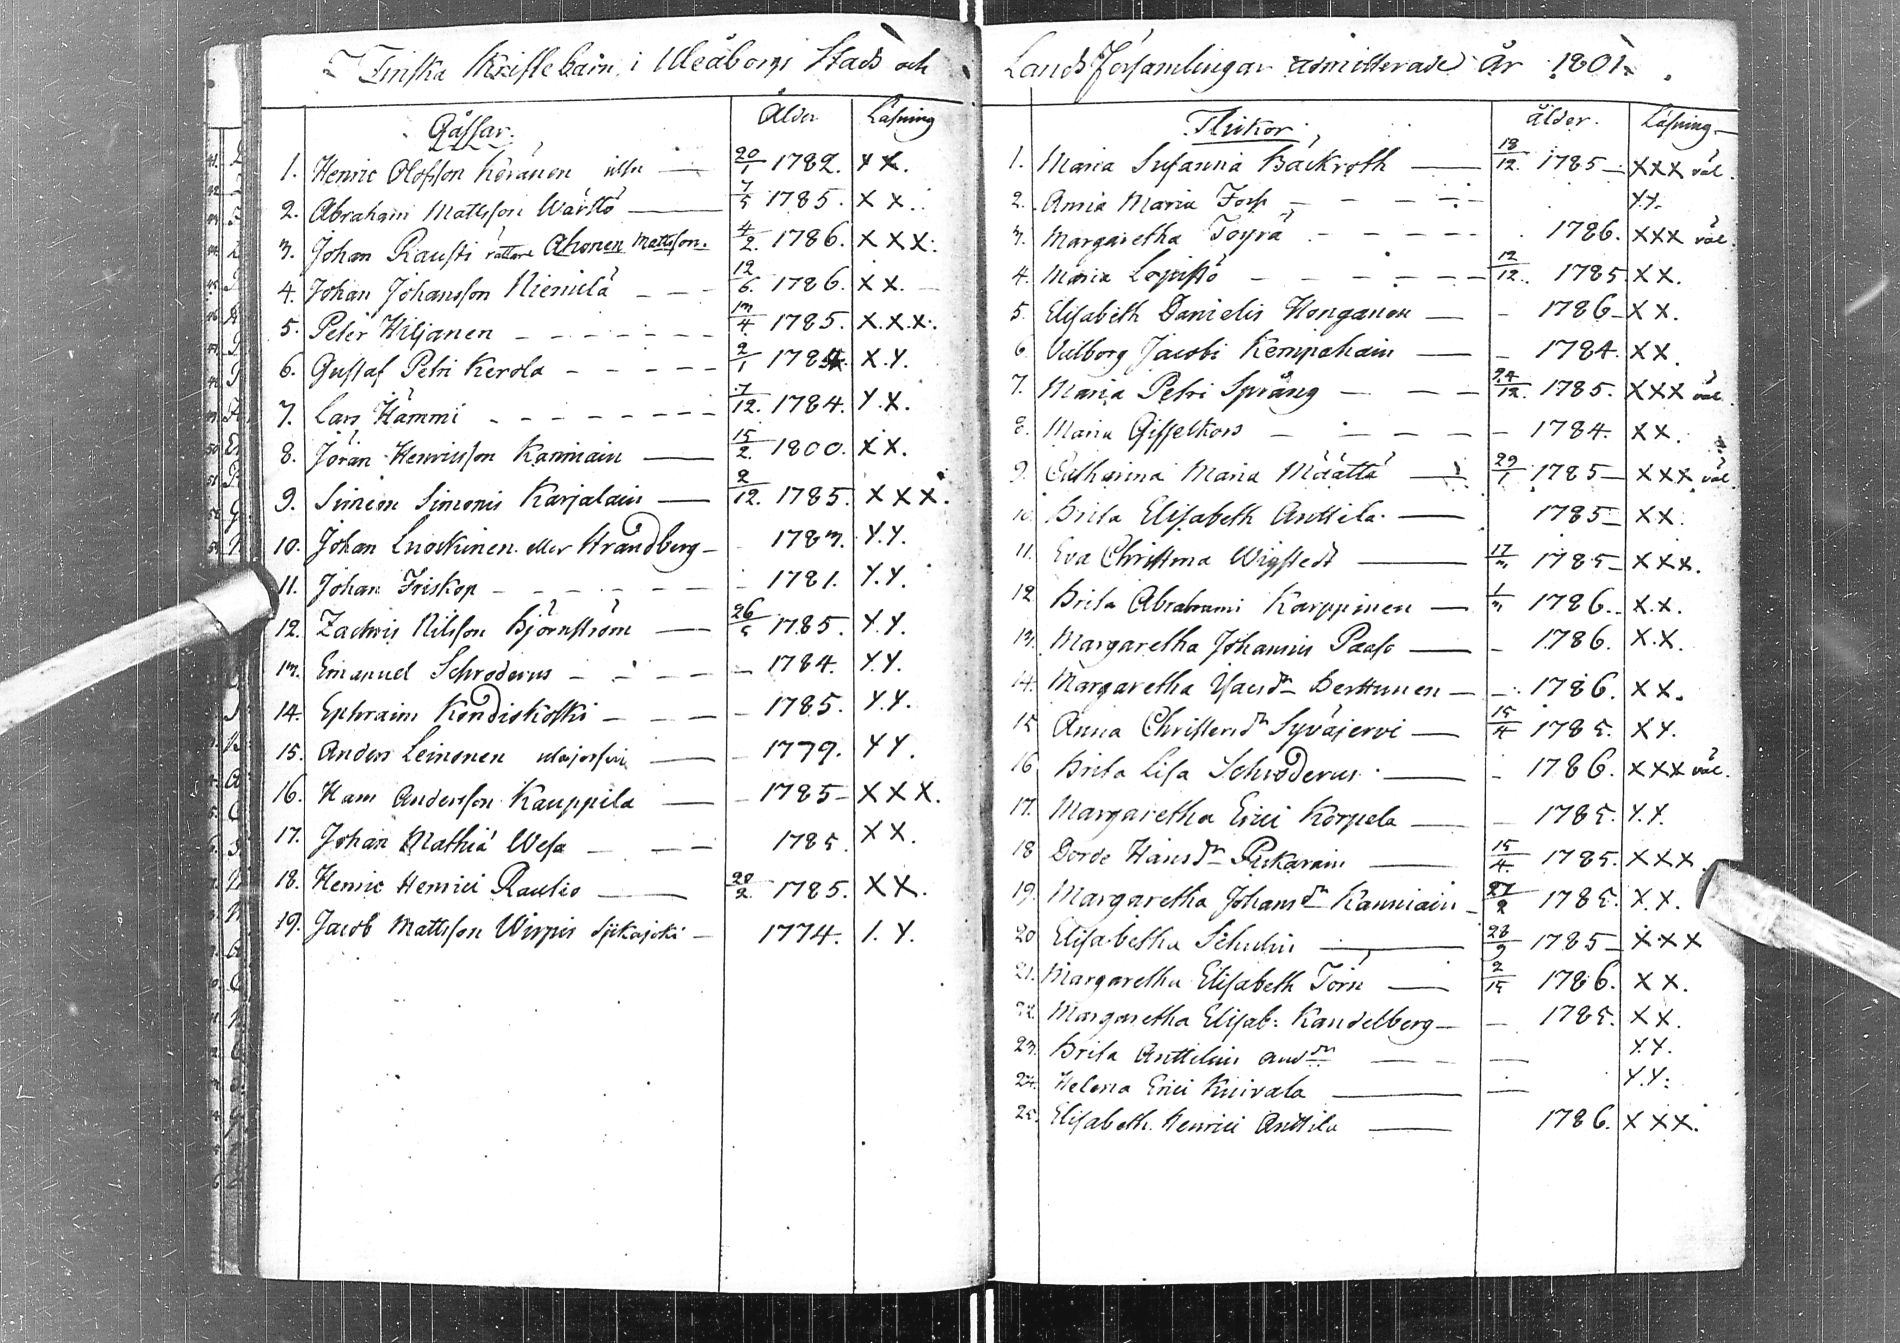 Finska Skriftebarn i Uleåborgs Stads och
Gåssar. Ålder Läsning
1. Henric Olofsson Keränen 20/1 1782. XX.
2. Abraham Mattsson Wärttö 7/5 1785. XX.
3. Johan Rausti rättare Ahonen Mattsson. 4/2. 1786. XXX.
4. Johan Johansson Niemelä 12/6. 1786. XX.
5. Peter Hiljanen 13/4 1785. X.X.X.
6. Gustaf Petri Kerola 2/1 1784. X.X.
7. Lars Hämmi 7/12. 1784. X.X.
8. Jöran Henricsson Kanniain 15/2. 1800. XX.
9. Simeon Simonis Karjalain 2/12. 1785. XXX.
10. Johan Luoskinen eller Strandberg 1783. X.X.
11. Johan Friskop 1781. X.X.
12. Zachris Nilsson Björnström 26/5 1785. X.X.
13. Emanuel Schroderus 1784. X.X.
14. Ephraim Kondiskoski 1785. X.X.
15. Anders Leinonen 1779. XX.
16. Hans Andersson Kauppila 1785 XXX.
17. Johan Mathiæ Wesa 1785. XX.
18. Henric Henrici Rautio 20/2 1785. XX.
19. Jacob Mattsson Wirpis Sjikajoki 1774. I. X.
Lands Församlingar admitterade år 1801.
Flickor. Ålder. Läsning
1. Maria Susanna Bäckroth 18/12. 1785 XXX väl.
2. Anna Maria Forss XX.
3. Margaretha Töyrä 1786. XXX väl.
4. Maria Lepistö 12/12. 1785 XX.
5. Elisabeth Danielis Honganen 1786 XX.
6. Walborg Jacobi Kempehain 1784. XX.
7. Maria Petri Språng 24/12. 1785. XXX väl.
8. Maria Gisselkors 1784. XX.
9. Catharina Maria Määttä 29/1 1785 XXX väl.
10. Brita Elisabeth Anttila 1785 XX.
11. Eva Christina Wigstedt 17/3 1785 XXX.
12. Brita Abrahami Karppinen 1/3 1786. X.X.
13. Margaretha Johannis Paaso 1786. X.X.
14. Margaretha Isacsdr Berttunen 1786. XX.
15. Anna Christersdr Syväjervi 15/4 1785. XX.
16. Brita Lisa Schroderus 1786. XXX väl.
17. Margaretha Erici Korpela 1785. X.X.
18. Dorde Hansdr Pukarain 15/4. 1785. XXX.
19. Margaretha Johansdr Kanniain 27/2 1785. X.X.
20. Elisabetha Schulin 28/9 1785 XXX
21. Margaretha Elisabeth Törn 2/15 1786. XX.
22. Margaretha Elisab: Kandelberg 1785. XX.
23. Brita Anttilus Andsdr X.X.
24. Helena Erici Knivala X.X.
25. Elisabeth Henrici Anttila 1786. XXX.